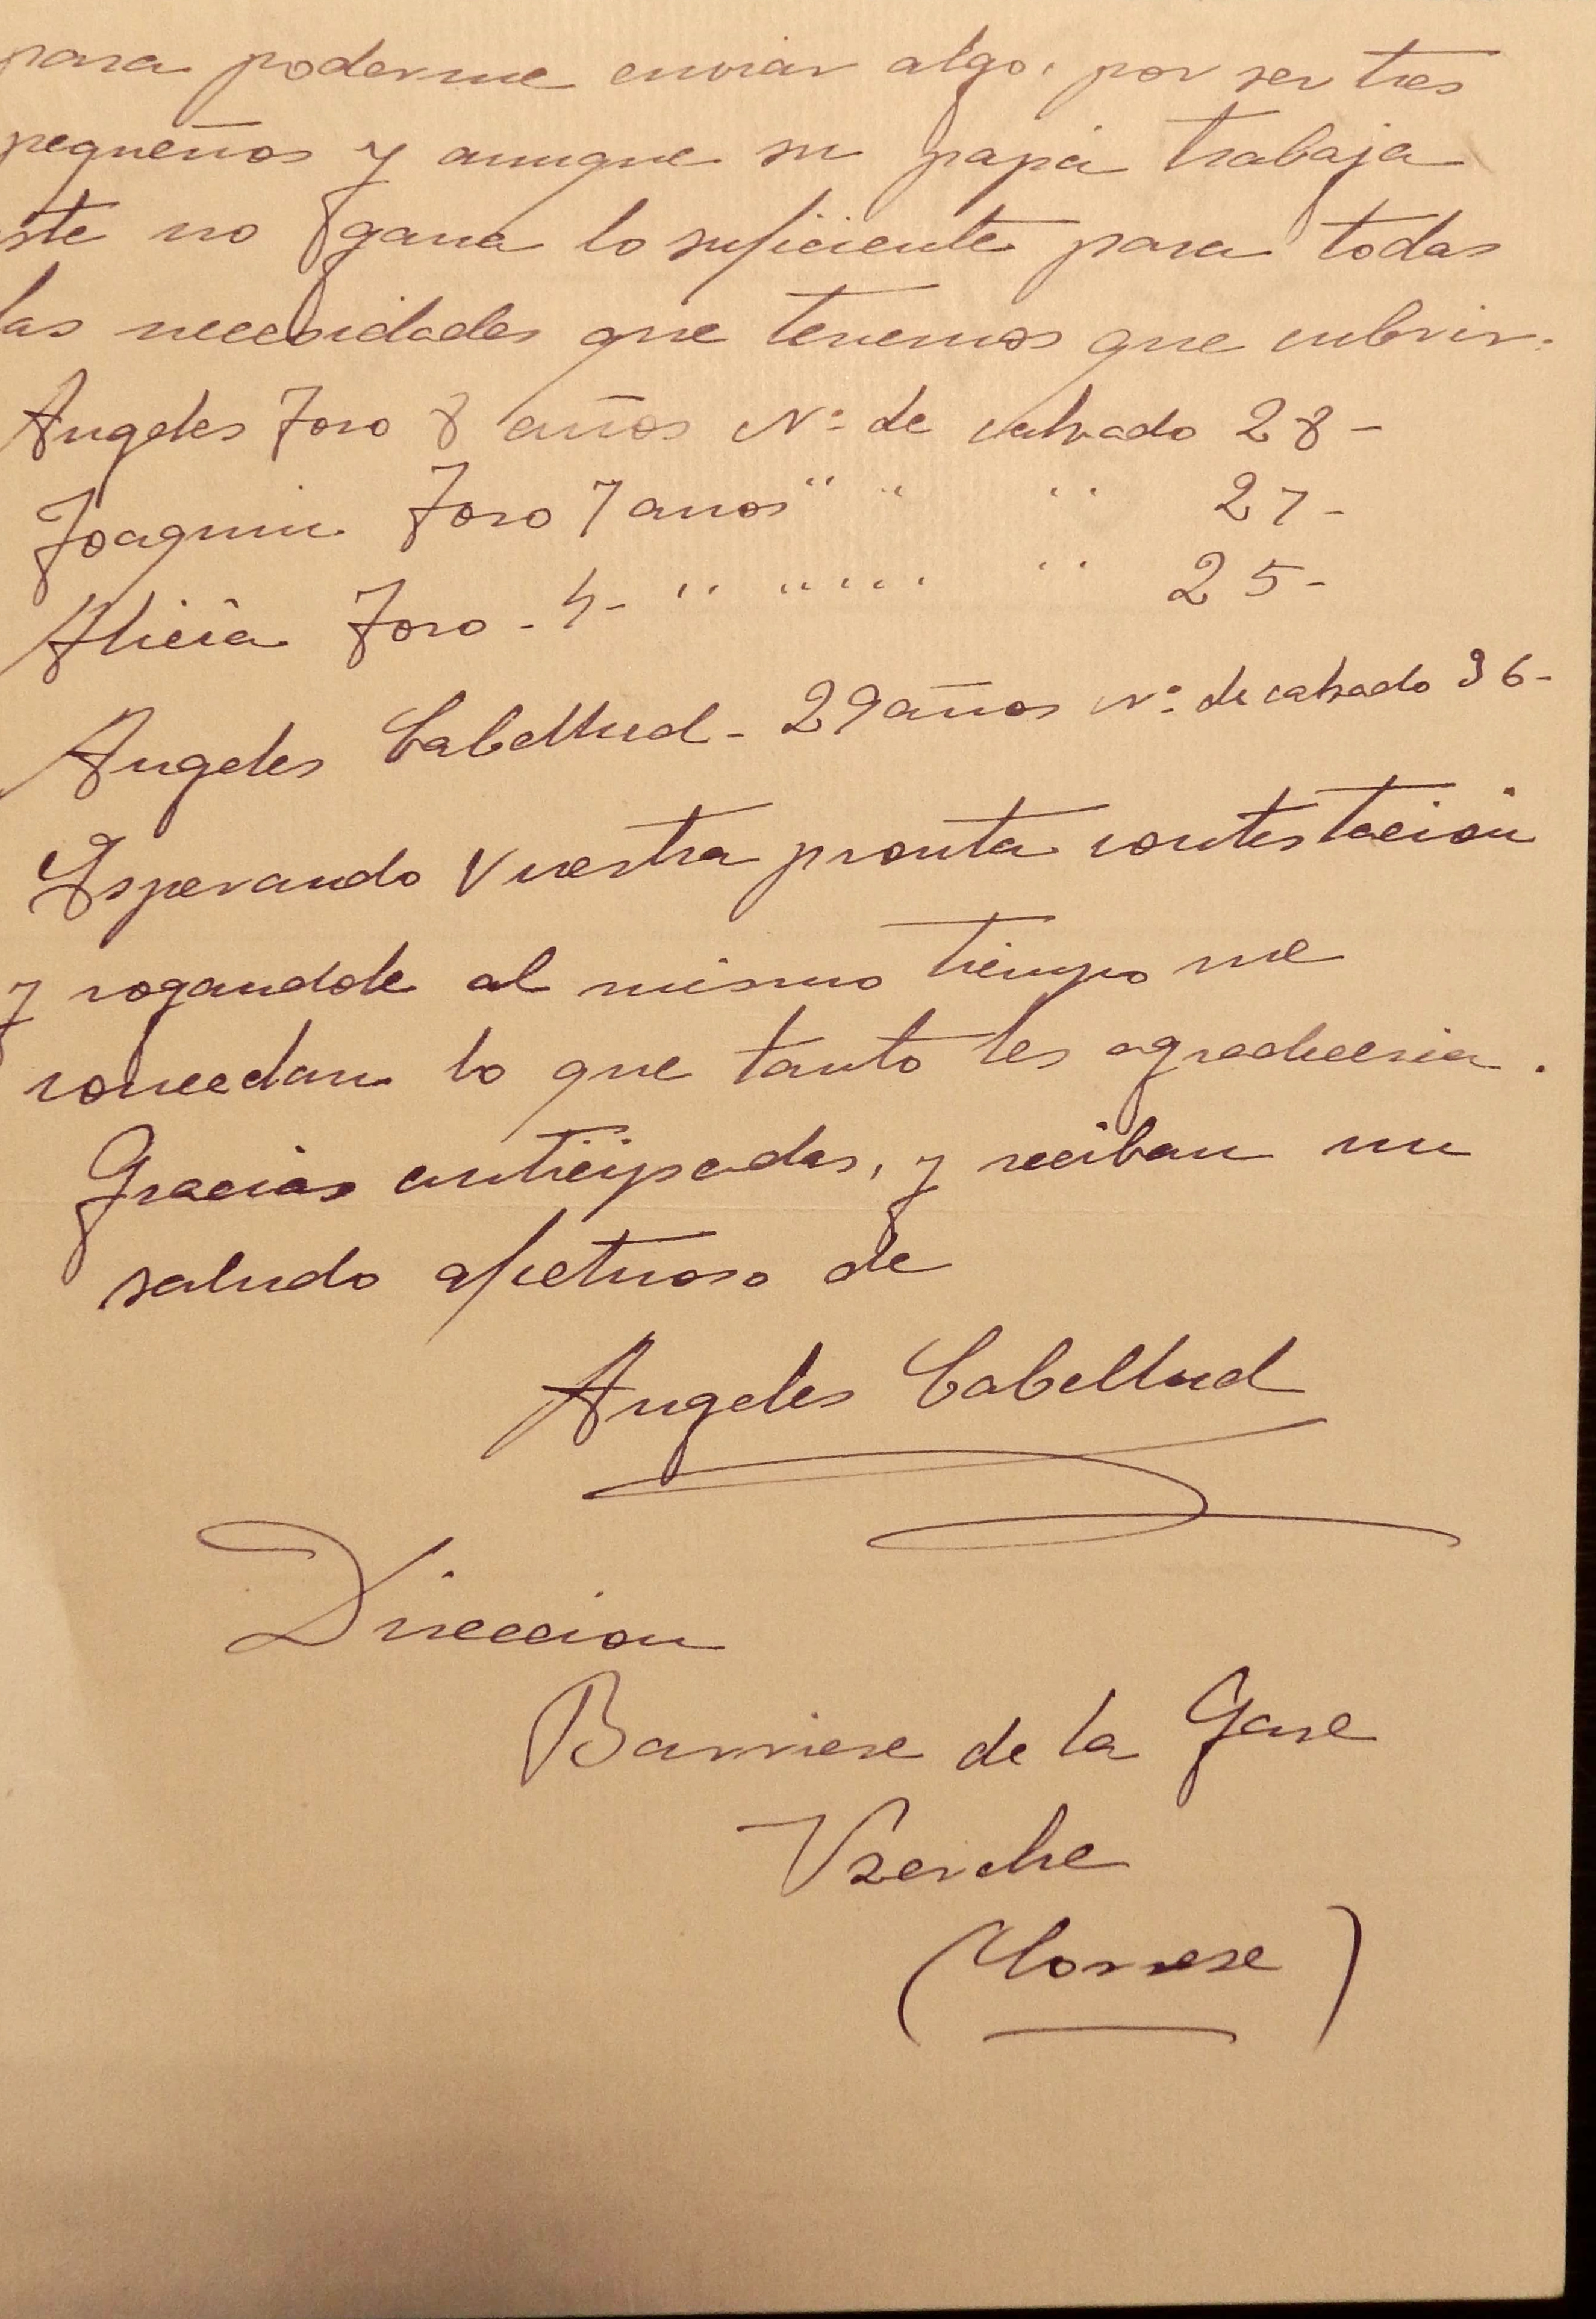 para poderme enviar algo, por ser tres
pequeños y aunque su papá trabaja
ste no gana lo suficiente para todas
las necesidades que tenemos que cubrir.
Angeles Toro 8 años Nº de calzado 28-
Joaquin Toro 7 anos " " " 27-
Alicia Toro - 4- " " " " 25-
Angeles Cabellud - 29 años Nº de calzado 36-
Esperando Vuestra pronta contestación
y rogandole al mismo tiempo me
concedan lo que tanto les agradeceria.
Gracias anticipadas, y reciban un
saludo afetuoso de
Angeles Cabellud
Direccion
Barriere de la Gare
Uzerche
(Correse)